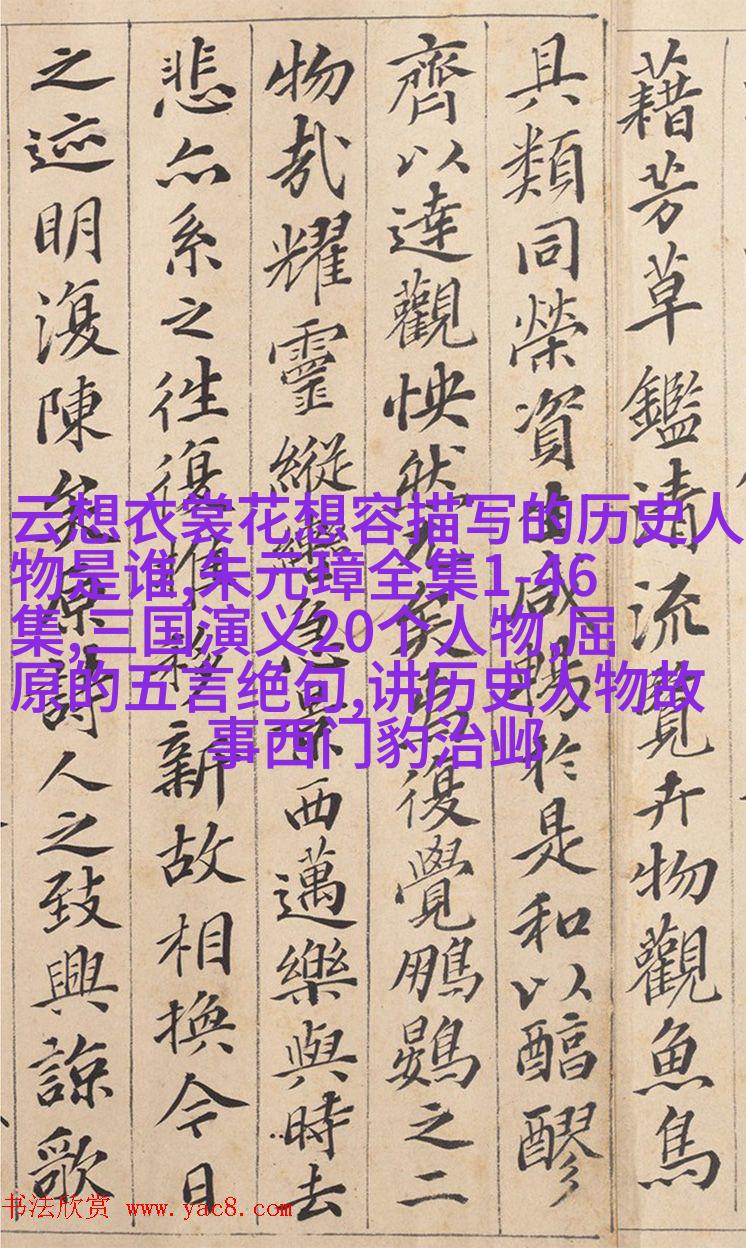 藉芳草鑑清流覽卉物觀魚鳥
具類同榮資生咸暢於是和以醕醪
齊以達觀怏然兀矣焉復覺鵬鷃之二
物哉耀靈縱轡急景西邁樂與時去
悲亦系之往復推移新故相換今日
之迹明復陳矣原詩人之致興諒歌
云想衣裳花想容描写的历史人
物是谁,朱元璋全集1-46
集,三国演义20个人物,屈
原的五言绝句,讲历史人物故
事西门豹治邺
书法欣赏 www.yac8.com